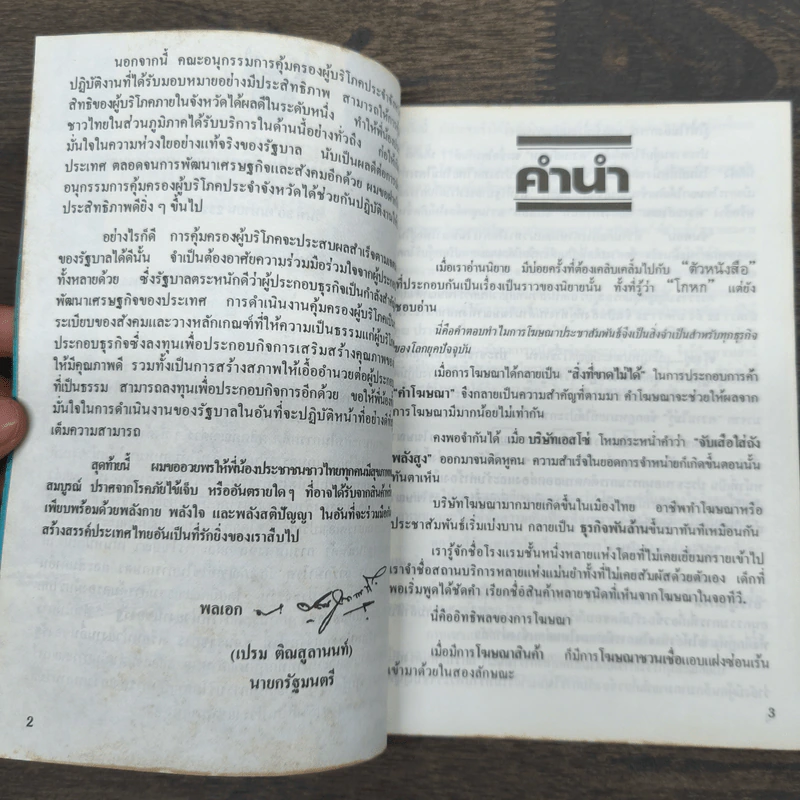 นอกจากนี้ คณะอนุกรรมการคุ้มครองผู้บริโภคประจำจังหวัด
ปฏิบัติงานที่ได้รับมอบหมายอย่างมีประสิทธิภาพ สามารถให้การ
สิทธิของผู้บริโภคภายในจังหวัดได้ผลดีในระดับหนึ่ง ทำให้พี่น้อง
ชาวไทยในส่วนภูมิภาคได้รับบริการในด้านนี้อย่างทั่วถึง ก่อให้
มั่นใจในความห่วงใยอย่างแท้จริงของรัฐบาล นับเป็นผลดีต่อการ
ประเทศ ตลอดจนการพัฒนาเศรษฐกิจและสังคมอีกด้วย ผมขอ
อนุกรรมการคุ้มครองผู้บริโภคประจำจังหวัดได้ช่วยกันปฏิบัติงาน
ประสิทธิภาพดียิ่ง ๆ ขึ้นไป
อย่างไรก็ดี การคุ้มครองผู้บริโภคจะประสบผลสำเร็จตาม
ของรัฐบาลได้ดีนั้น จำเป็นต้องอาศัยความร่วมมือร่วมใจจากผู้ประกอบ
ทั้งหลายด้วย ซึ่งรัฐบาลตระหนักดีว่าผู้ประกอบธุรกิจเป็นกำลังสำคัญ
พัฒนาเศรษฐกิจของประเทศ การดำเนินงานคุ้มครองผู้บริโภค
ระเบียบของสังคมและวางหลักเกณฑ์ที่ให้ความเป็นธรรมแก่ผู้บริโภค
ประกอบธุรกิจซึ่งลงทุนเพื่อประกอบกิจการเสริมสร้างคุณภาพของ
ให้มีคุณภาพดี รวมทั้งเป็นการสร้างสภาพให้เอื้ออำนวยต่อผู้ประกอบ
ที่เป็นธรรม สามารถลงทุนเพื่อประกอบกิจการอีกด้วย ขอให้พี่น้อง
มั่นใจในการดำเนินงานของรัฐบาลในอันที่จะปฏิบัติหน้าที่อย่างดีที่สุด
เต็มความสามารถ
สุดท้ายนี้ ผมขออวยพรให้พี่น้องประชาชนชาวไทยทุกคนมีสุขภาพ
สมบูรณ์ ปราศจากโรคภัยไข้เจ็บ หรืออันตรายใด ๆ ที่อาจได้รับจากสินค้า
เพียบพร้อมด้วยพลังกาย พลังใจ และพลังสติปัญญา ในอันที่จะร่วมมือกัน
สร้างสรรค์ประเทศไทยอันเป็นที่รักยิ่งของเราสืบไป
พลเอก
(เปรม ติณสูลานนท์)
นายกรัฐมนตรี
2
คำนำ
เมื่อเราอ่านนิยาย มีบ่อยครั้งที่ต้องเคลิบเคลิ้มไปกับ “ตัวหนังสือ”
ที่ประกอบกันเป็นเรื่องเป็นราวของนิยายนั้น ทั้งที่รู้ว่า “โกหก” แต่ยัง
ชอบอ่าน
นี่คือคำตอบทำไมการโฆษณาประชาสัมพันธ์จึงเป็นสิ่งจำเป็นสำหรับทุกธุรกิจ
ของโลกยุคปัจจุบัน
เมื่อการโฆษณาได้กลายเป็น “สิ่งที่ขาดไม่ได้” ในการประกอบการค้า
“คำโฆษณา” จึงกลายเป็นความสำคัญที่ตามมา คำโฆษณาจะช่วยให้ผลจาก
การโฆษณามีมากน้อยไม่เท่ากัน
คงพอจำกันได้ เมื่อ บริษัทเอสโซ่ โหมกระหน่ำคำว่า “จับเสือใส่ถัง
พลังสูง” ออกมาจนติดหูคน ความสำเร็จในยอดการจำหน่ายก็เกิดขึ้นตอนนั้น
ทันตาเห็น
บริษัทโฆษณามากมายเกิดขึ้นในเมืองไทย อาชีพทำโฆษณาหรือ
ประชาสัมพันธ์เริ่มเบ่งบาน กลายเป็น ธุรกิจพันล้านขึ้นมาทันทีเหมือนกัน
เรารู้จักชื่อโรงแรมชั้นหนึ่งหลายแห่งโดยที่ไม่เคยเยี่ยมกรายเข้าไป
เราจำชื่อสถานบริการหลายแห่งแม่นยำทั้งที่ไม่เคยสัมผัสด้วยตัวเอง เด็กที่
พอเริ่มพูดได้ชัดคำ เรียกชื่อสินค้าหลายชนิดที่เห็นจากโฆษณาในจอทีวี.
นี่คืออิทธิพลของการโฆษณา
เมื่อมีการโฆษณาสินค้า ก็มีการโฆษณาชวนเชื่อแอบแฝงซ่อนเร้น
เข้ามาด้วยในสองลักษณะ
3